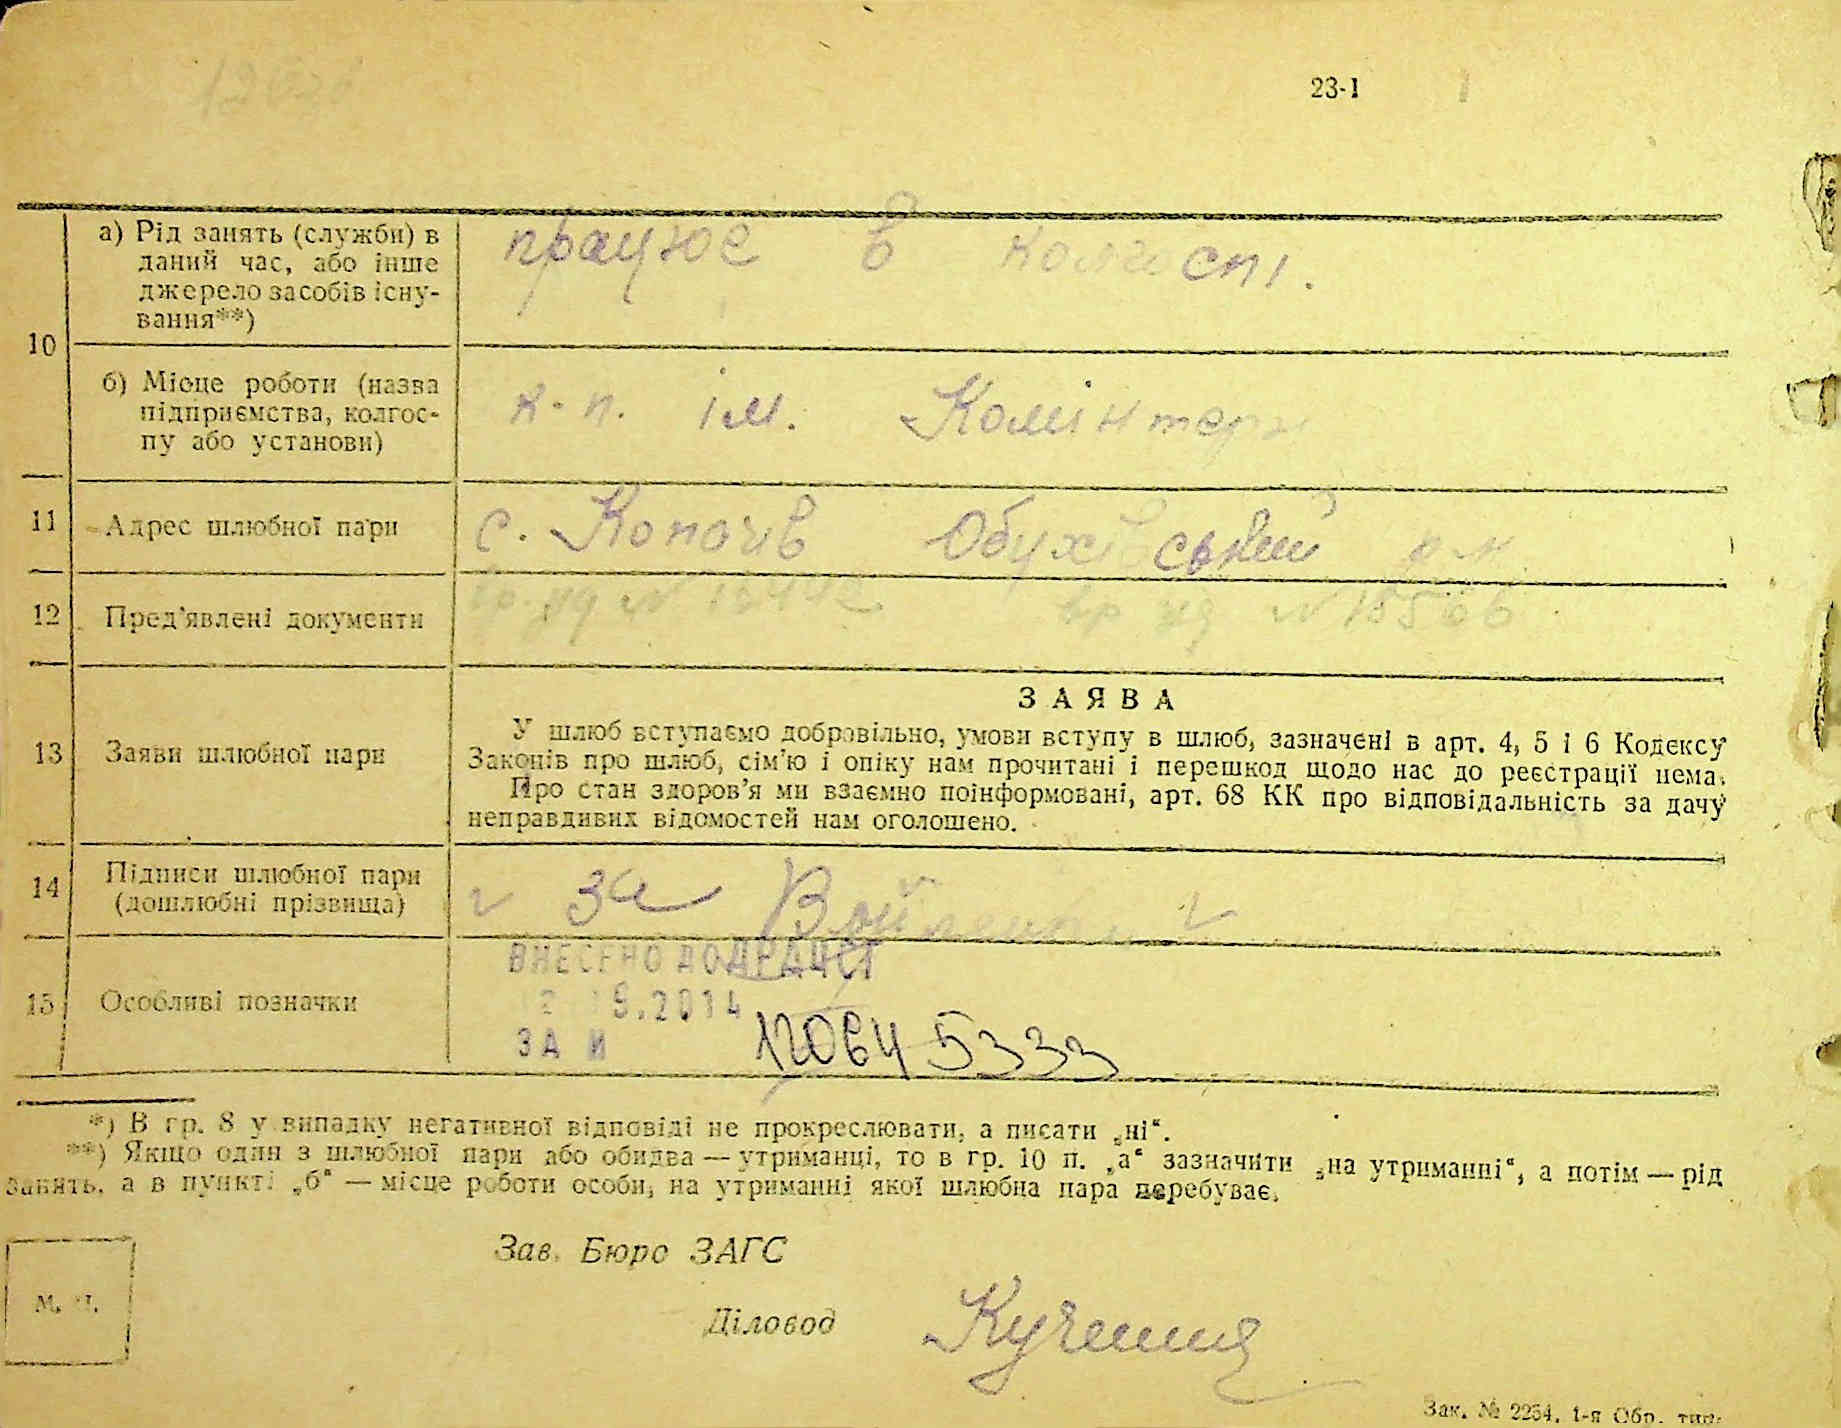 23-1
а) Рід занять (служби) в
даний час, або інше
джерело засобів існу-
вання**)
працює в колгоспі.
10
б) Місце роботи (назва
підприємства, колгос-
пу або установи)
к-п. ім. Комінтерн
11 Адрес шлюбної пари
с. Копачів Обухівський р-н
12 Пред'явлені документи
№ №
ЗАЯВА
У шлюб вступаємо добровільно, умови вступу в шлюб, зазначені в арт. 4, 5 і 6 Кодексу
13 Заяви шлюбної пари
Законів про шлюб, сім'ю і опіку нам прочитані і перешкод щодо нас до реєстрації нема.
Про стан здоров'я ми взаємно поінформовані, арт. 68 КК про відповідальність за дачу
неправдивих відомостей нам оголошено.
14 Підписи шлюбної пари
(дошлюбні прізвища)
за
ВНЕСЕНО ДО ДРАЦСГ
15 Особливі позначки
9.2014
ЗА №
12064 5333
*) В гр. 8 у випадку негативної відповіді не прокреслювати, а писати „ні“.
**) Якщо один з шлюбної пари або обидва — утриманці, то в гр. 10 п. „а“ зазначити „на утриманні“, а потім — рід
занять, а в пункті „б“ — місце роботи особи, на утриманні якої шлюбна пара перебуває.
Зав. Бюро ЗАГС
М. П.
Діловод
Зак. № 2254. 1-я Обр. тип.